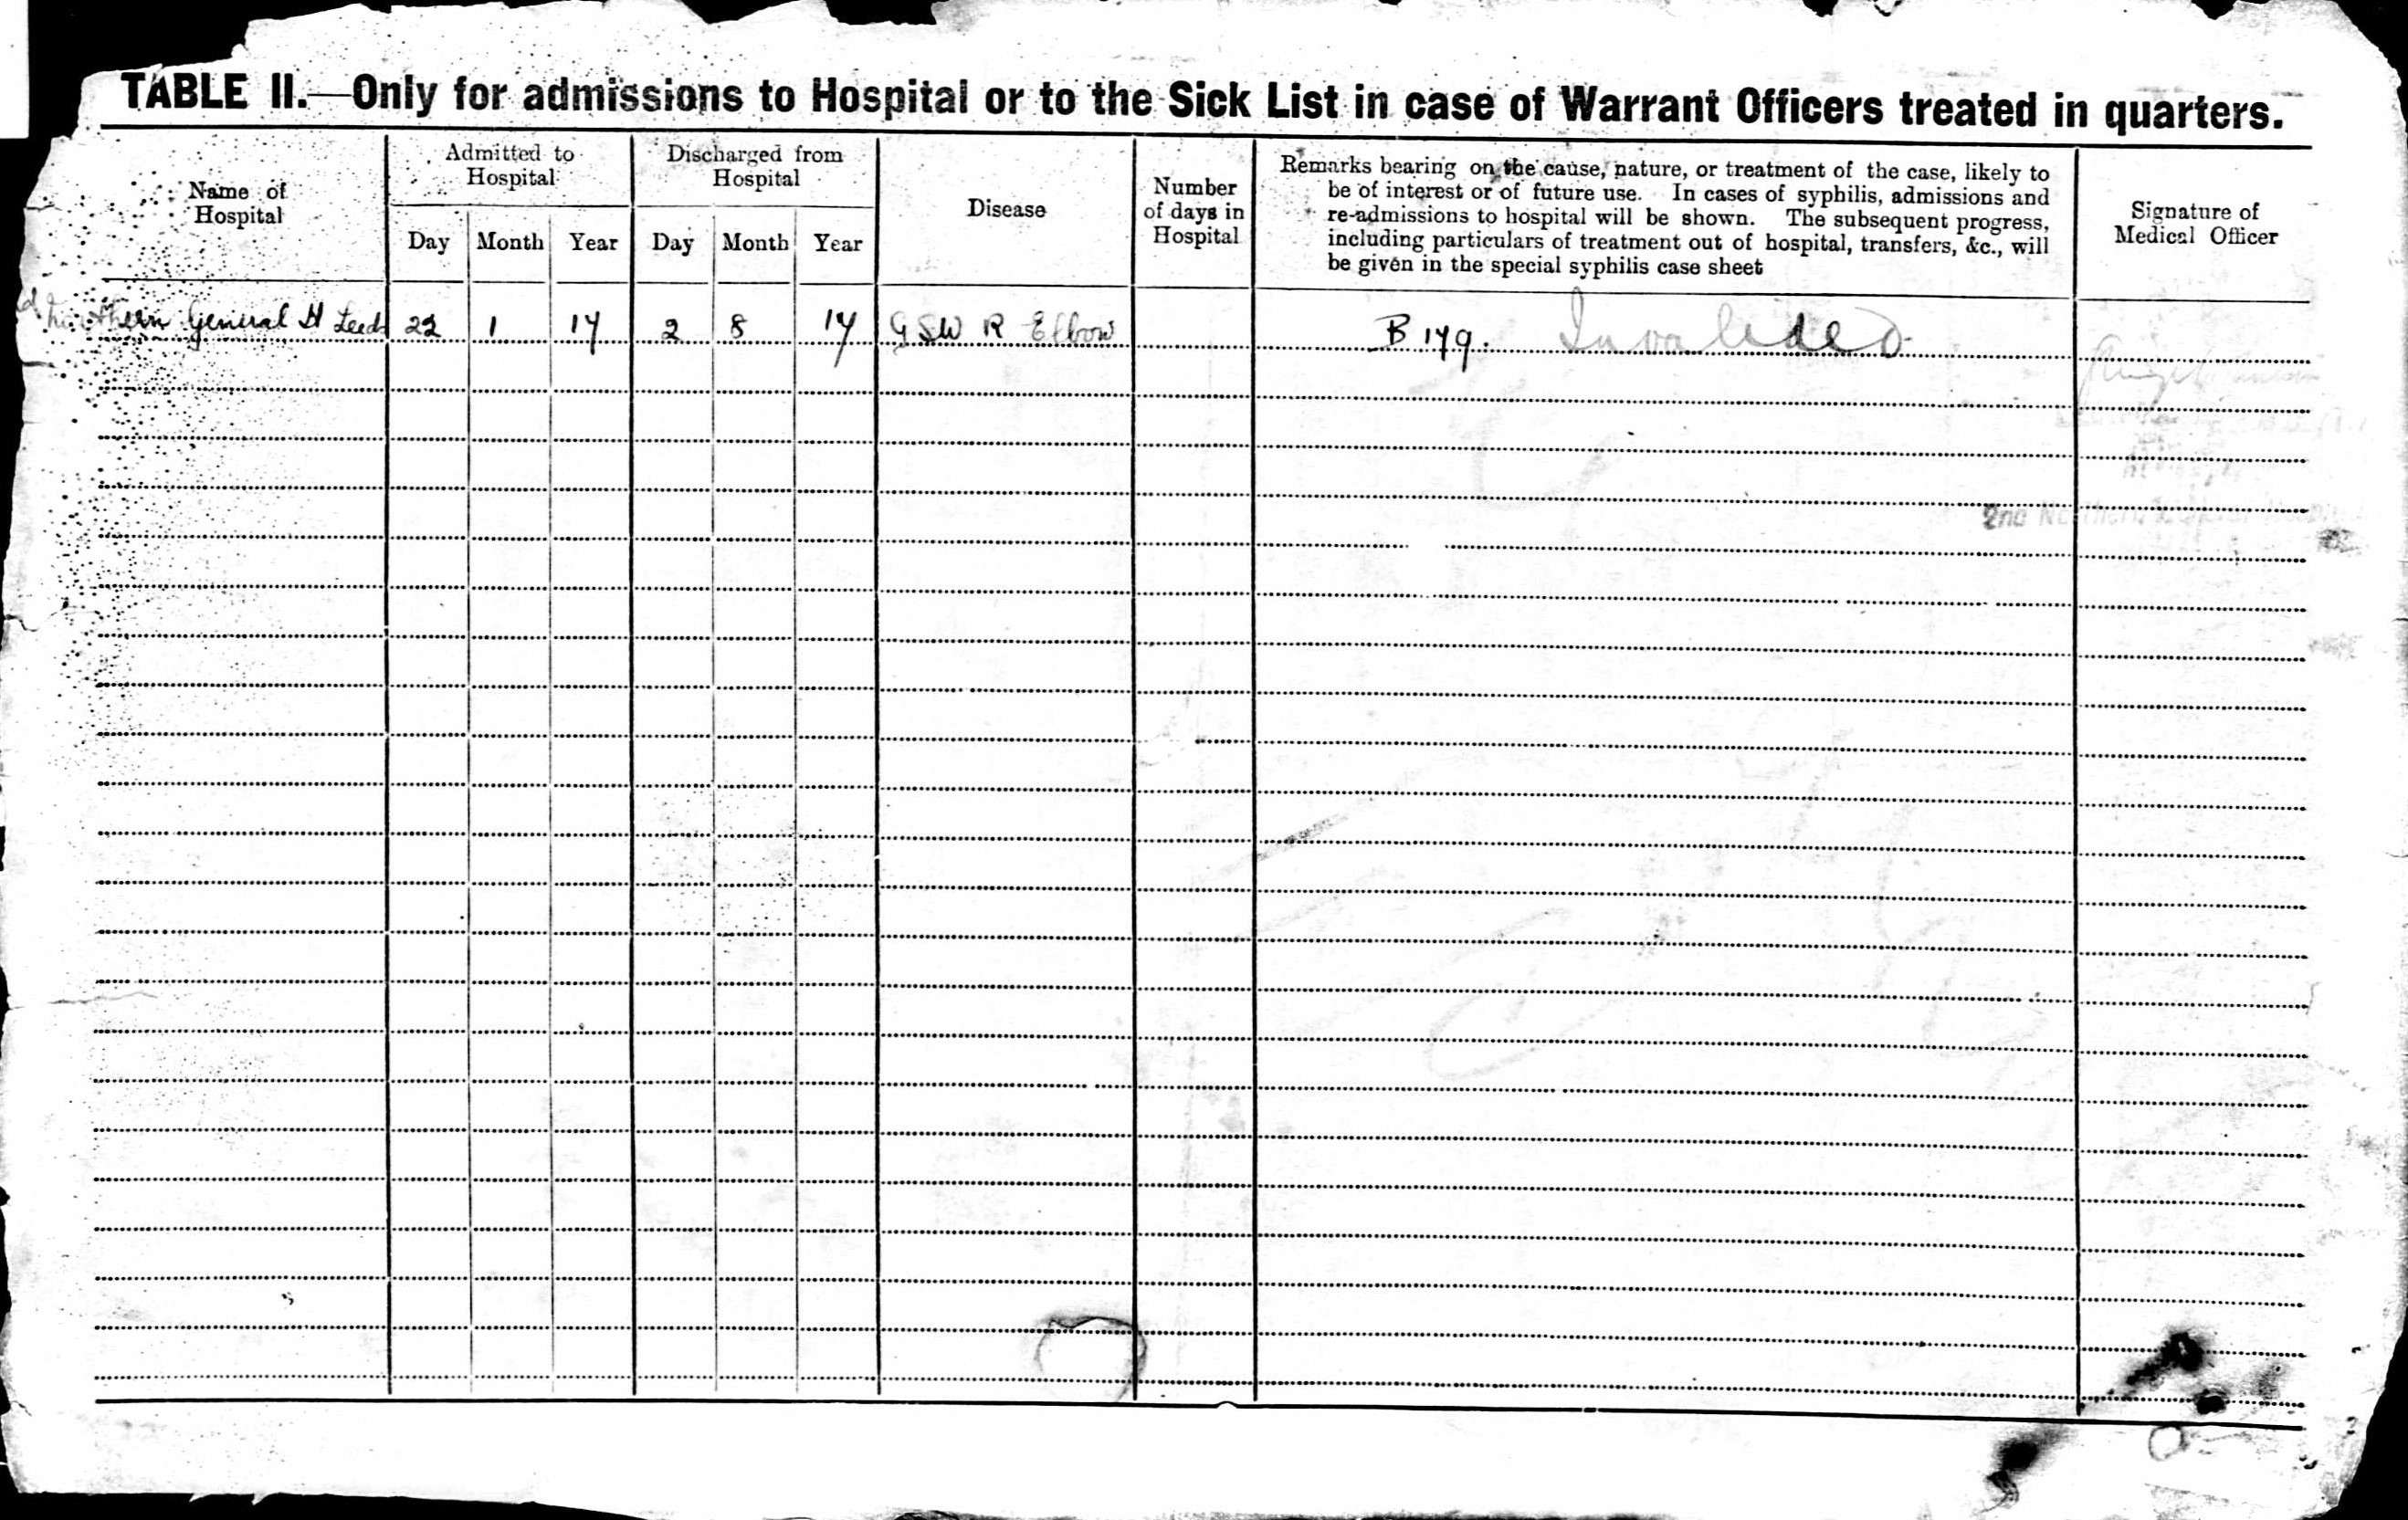 TABLE II.—Only for admissions to Hospital or to the Sick List in case of Warrant Officers treated in quarters.
Name of
Hospital
Admitted to
Hospital
Day Month Year
Discharged from
Hospital
Day Month Year
Disease
Number
of days in
Hospital
Remarks bearing on the cause, nature, or treatment of the case, likely to
be of interest or of future use. In cases of syphilis, admissions and
re-admissions to hospital will be shown. The subsequent progress,
including particulars of treatment out of hospital, transfers, &c., will
be given in the special syphilis case sheet
Signature of
Medical Officer
Northern General H Leeds 22 1 17 2 8 17 GSW R Elbow B 179. Invalided
2nd Northern General